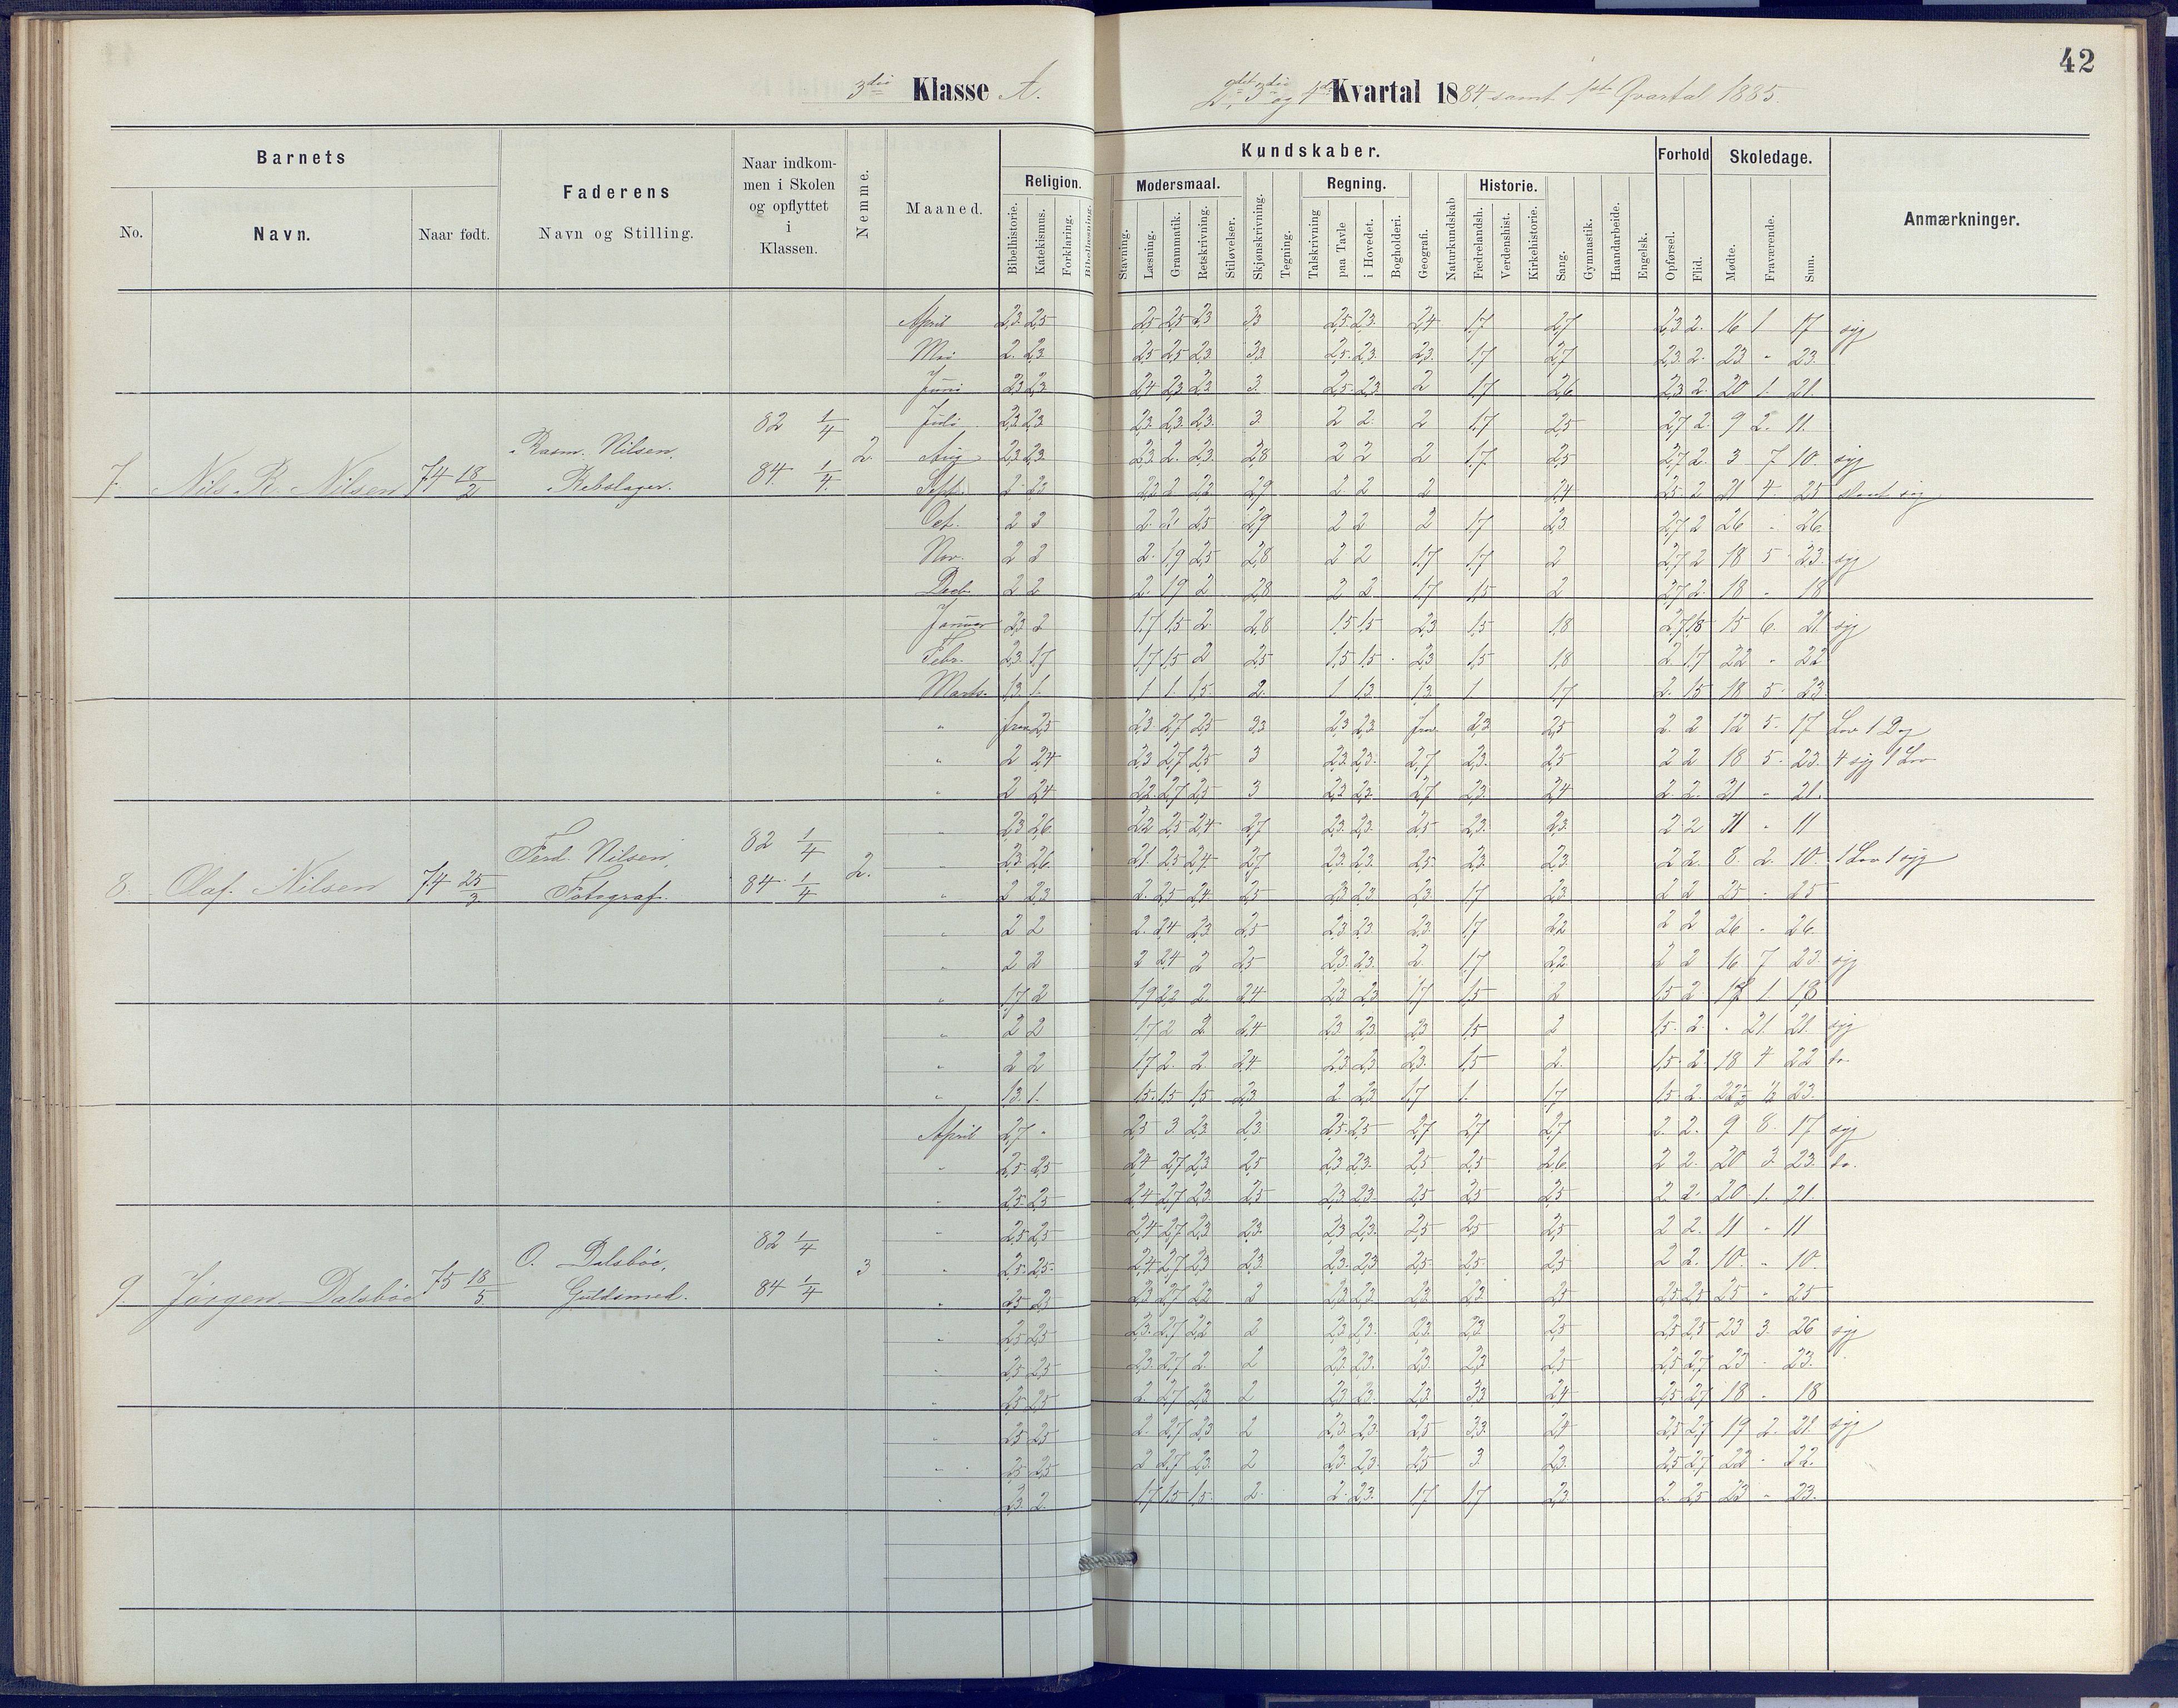 42
3die Klasse A.
2det 3die og 4de Kvartal 1884, samt 1ste Qvartal 1885.
Barnets
No.
Navn.
Naar født.
Faderens
Navn og Stilling.
Naar indkom-
men i Skolen
og opflyttet
i
Klassen.
Nemme.
Maaned.
Kundskaber.
Religion.
Bibelhistorie.
Katekismus.
Forklaring.
Bibellæsning.
Modersmaal.
Stavning.
Læsning.
Grammatik.
Retskrivning.
Stiløvelser.
Skjønskrivning.
Tegning.
Regning.
Talskrivning
paa Tavle
i Hovedet.
Bogholderi.
Geografi.
Naturkundskab
Historie.
Fædrelandsh.
Verdenshist.
Kirkehistorie.
Sang.
Gymnastik.
Haandarbeide.
Engelsk.
Forhold
Opførsel.
Flid.
Skoledage.
Mødte.
Fraværende.
Sum.
Anmærkninger.
7. Nils R. Nilsen 74 18/2 Rasm. Nilsen, Rebslager. 82 1/4 84 1/4 2.
April 2,3 2,5 2,5 2,5 2,3 3,3 2,5 2,3 2,4 1,7 2,7 2,3 2. 16 1 17 syg
Mai 2. 2,3 2,5 2,5 2,3 3,3 2,5 2,3 2,3 1,7 2,7 2,3 2. 23 " 23.
Juni 2,3 2,3 2,4 2,3 2,3 3. 2,5 2,3 2 1,7 2,6 2,3 2. 20 1. 21.
Juli 2,3 2,3 2,3 2,3 2,3 3. 2 2. 2 1,7 2,5 2,7 2. 9 2. 11.
Aug 2,3 2,3 2,3 2. 2,3 2,8 2 2 2 1,7 2,5 2,7 2. 3 7 10. syg
Sept. 2,9 2 2 2 2,4 2,5 2 21 4. 25 syg
Oct. 2 2 2. 2 2,5 2,9 2 2 2 1,7 2,3 2,7 2 26 " 26.
Nov. 2 2 2. 1,9 2,5 2,8 2 2 1,7 1,7 2 2,7 2 18 5 23. syg
Decb. 2 2 2. 1,9 2 2,8 2 2. 1,7 1,5 2 2,7 2. 18 " 18
Januar 2,3 2 1,7 1,5 2. 2,8 1,5 1,5 2,3 1,5 1,8 2,7 1,8 15 6. 21 syg
Febr. 2,3 1,7 1,7 1,5 2 2,5 1,5 1,5 2,3 1,5 1,8 2 1,7 22 " 22
Marts. 1,3 1. 1 1. 1,5 2. 1 1,3 1,3 1 1,7 2. 1,5 18 5. 23.
8. Olaf. Nilsen 74 25/3 Ferd. Nilsen, Fotograf. 82 1/4 84 1/4 2.
" frav 2,5 2,3 2,7 2,5 3,3 2,3 2,3 frav. 2,3 2,5 2. 2 12 5. 17 Lov 1 Dag
" 2 2,4 2,3 2,7 2,5 3 2,3 2,3 2,7 2,3 2,5 2 2 18 5. 23. 4 syg 1 Lov
" 2 2,4 2,2 2,7 2,5 3 2,3 2,3 2,7 2,3 2,4 2. 2. 21 " 21.
" 2,3 2,6 2,2 2,5 2,4 2,7 2,3 2,3 2,5 2,3 2,3 2 2 11 " 11
" 2,3 2,6 2,1 2,5 2,4 2,7 2,3 2,3 2,5 2,3 2,3 2 2. 8. 2. 10. 1 Lov 1 syg
" 2 2,3 2. 2,5 2,4 2,5 2,3 2,3 2,3 1,7 2,3 2 2 25 " 25
" 2 2 2. 2,4 2,3 2,5 2,3 2,3 2,3 1,7 2,2 2 2 26 " 26.
" 2 2 2 2,4 2 2,5 2,3 2,3 2. 1,7 2,2 2 2 16 7 23. syg
" 1,7 2 1,9 2,2 2. 2,4 2,3 2,3 1,7 1,5 2 1,5 2. 17 1. 18
" 2 2 1,7 2 2 2,4 2,3 2,3 2,3 1,5 2 1,5 2. " 21. 21. syg
" 2 2 1,7 2. 2. 2,4 2,3 2,3 2,3 1,5 2. 1,5 2. 18 4 22 do.
" 1,3 1. 1,5 1,5 1,5 2,3 2. 2,3 1,7 1. 1,7 1,5 2. 22½ ½ 23.
9. Jörgen Dalsböe 75 18/5. O. Dalsböe, Guldsmed. 82 1/4 84 1/4 3
April 2,7 " 2,5 3. 2,3 2,3 2,5 2,5 2,7 2,7 2,7 2. 2. 9 8. 17 syg
" 2,5 2,5 2,4 2,7 2,3 2,5 2,3 2,3 2,5 2,5 2,6 2 2. 20 3. 23. do.
" 2,5 2,5 2,4 2,7 2,3 2,5 2,3 2,3 2,5 2,5 2,5 2. 2. 20 1. 21.
" 2,5 2,5 2,4 2,7 2,3 2,3 2,3 2,3 2,5 2,5 2,5 2 2. 11 " 11
" 2,5 2,5 2,4 2,7 2,3 2,3 2,3 2,3 2,5 2,5 2,5 2 2. 10. " 10.
" 2,5 2,5 2,3 2,7 2,2 2 2,3 2,3 2,3 2,3 2,5 2,5 2,5 25 " 25
" 2,5 2,5 2,3 2,7 2,2 2 2,3 2,3 2,3 2,3 2,5 2,5 2,5 23 3. 26 syg
" 2,5 2,5 2,3 2,7 2. 2 2,3 2,3 2,3 2,3 2,5 2,5 2,7 23 " 23.
" 2,5 2,5 2. 2,7 2,3 2 2,3 2,3 2,3 3,3 2,4 2,5 2,7 18 " 18
" 2,5 2,5 2. 2,7 2,3 2 2,3 2,3 2,5 3,3 2,4 2,5 2,7 19 2. 21. syg
" 2,5 2,5 2 2,7 2,3 2 2,3 2,3 2,5 3. 2,3 2,5 2,7 22 " 22.
" 2,3 2. 1,7 1,5 1,5 2. 2. 2,3 1,7 1,7 2,3 2. 2,5 23 " 23.